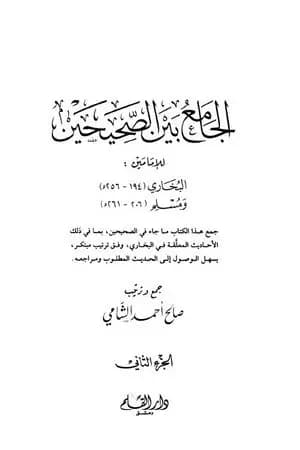 الجامع بين الصحيحين
للإمامين :
البخاري (١٩٤ - ٢٥٦ه)
ومسلم (٢٠٦ - ٢٦١ه)
جمع هذا الكتاب ما جاء في الصحيحين، بما في ذلك
الأحاديث المعلقة في البخاري، وفق ترتيب مبتكر،
يسهل الوصول إلى الحديث المطلوب ومراجعه.
جمع وترتيب
صالح أحمد الشامي
الجزء الثاني
دار القلم
دمشق